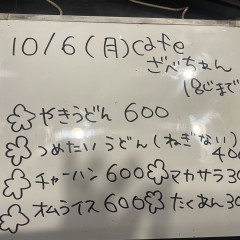 10/6(月)cafe
ざべちゃん
18じまで
やきうどん 600
つめたいうどん(ねぎない)
400
チャーハン 600 マカサラ 30
オムライス 600 たくあん 30